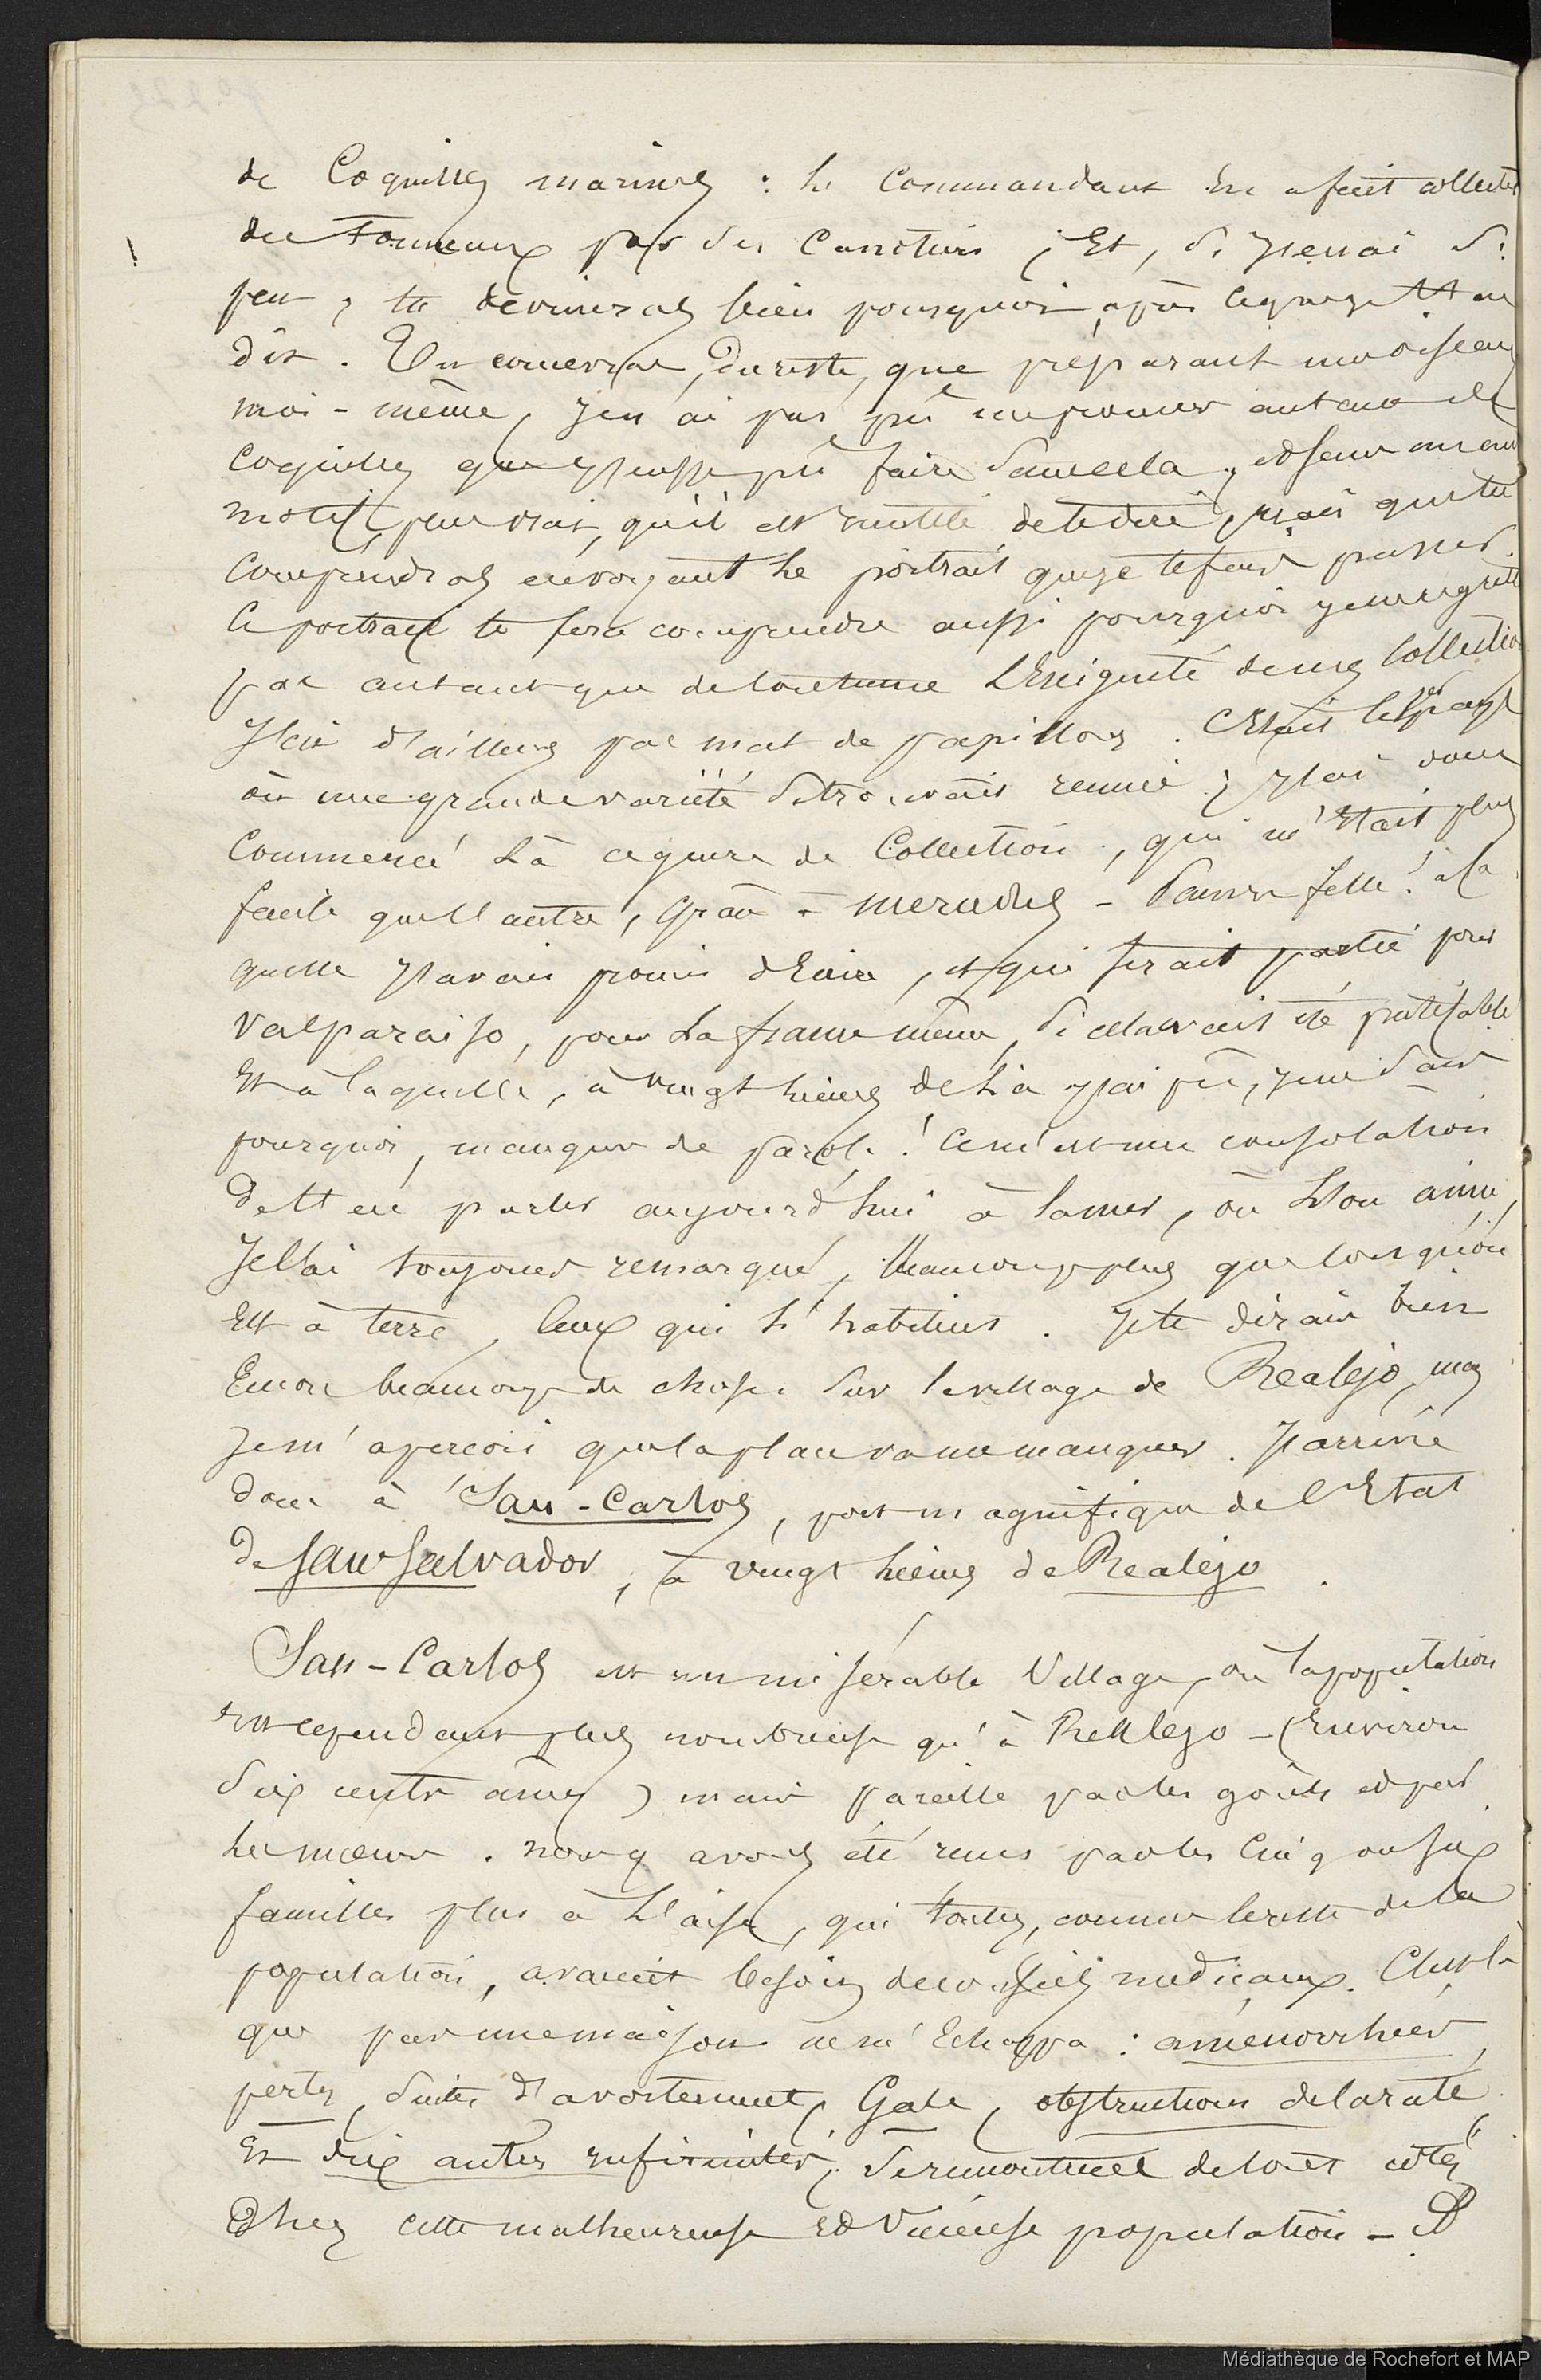 de Coquilles marines : le Commandant En a fait collecter
des Tonneaux par des Canotiers ; Et, si j'en ai si
peu, tu devineras bien pourquoi, après ce que je t'en ai
dit. Tu concevras, du reste, que préparant mes oiseaux
moi-même, je n'ai pas pû me procurer autant de
Coquilles que j'eusse pû faire sans cela, et sans un autre
motif, peu vrai, qu'il est inutile de te dire, mais que tu
Comprendras en voyant le portrait que je te ferai passer.
Ce portrait te fera comprendre aussi pourquoi je ne regrette
pas autant que de coutume L'Exiguité de mes Collections
J'ai d'ailleurs pas mal de papillons. C'était le pays
où une grande variété se trouvait réunie ; j'ai donc
Commencé là ce genre de Collection, qui m'était plus
facile que l'autre, grâce à Mercedes - Pauvre fille ! à la
quelle j'avais promis d'Ecrire, et qui serait partie pour
Valparaiso, pour la france même, si cela avait été praticable
Et à laquelle, à vingt lieues de là j'ai pû, je ne sais
pourquoi, manquer de parole ! Ce m'est une consolation
De t'en parler aujourd'hui à la mer, où L'on aime,
Je l'ai toujours remarqué, Beaucoup plus que lorsqu'on
Est à terre, Ceux qui L'habitent. Je te dirais bien
Encore beaucoup de choses sur le village de Realejo, mais
Je m'aperçois que la place va me manquer. J'arrive
donc à San-Carlos, port magnifique de l'Etat
de San Salvador, à vingt lieues de Realejo.
San-Carlos est un misérable Village, où la population
Est cependant plus nombreuse qu'à Realejo - (Environ
Six cents âmes) mais pareille par les goûts et par
les mœurs. Nous y avons été reçus par les Cinq ou six
familles plus à L'aise, qui toutes, comme le reste de la
population, avaient besoin de conseils médicaux. C'est là
que pas une maison ne m'Echappa : aménorrhées,
pertes, suites d'avortement, Gale, obstructions de la rate,
Et dix autres infirmités, se rencontraient de tous côtés
Chez cette malheureuse Et Vicieuse population -